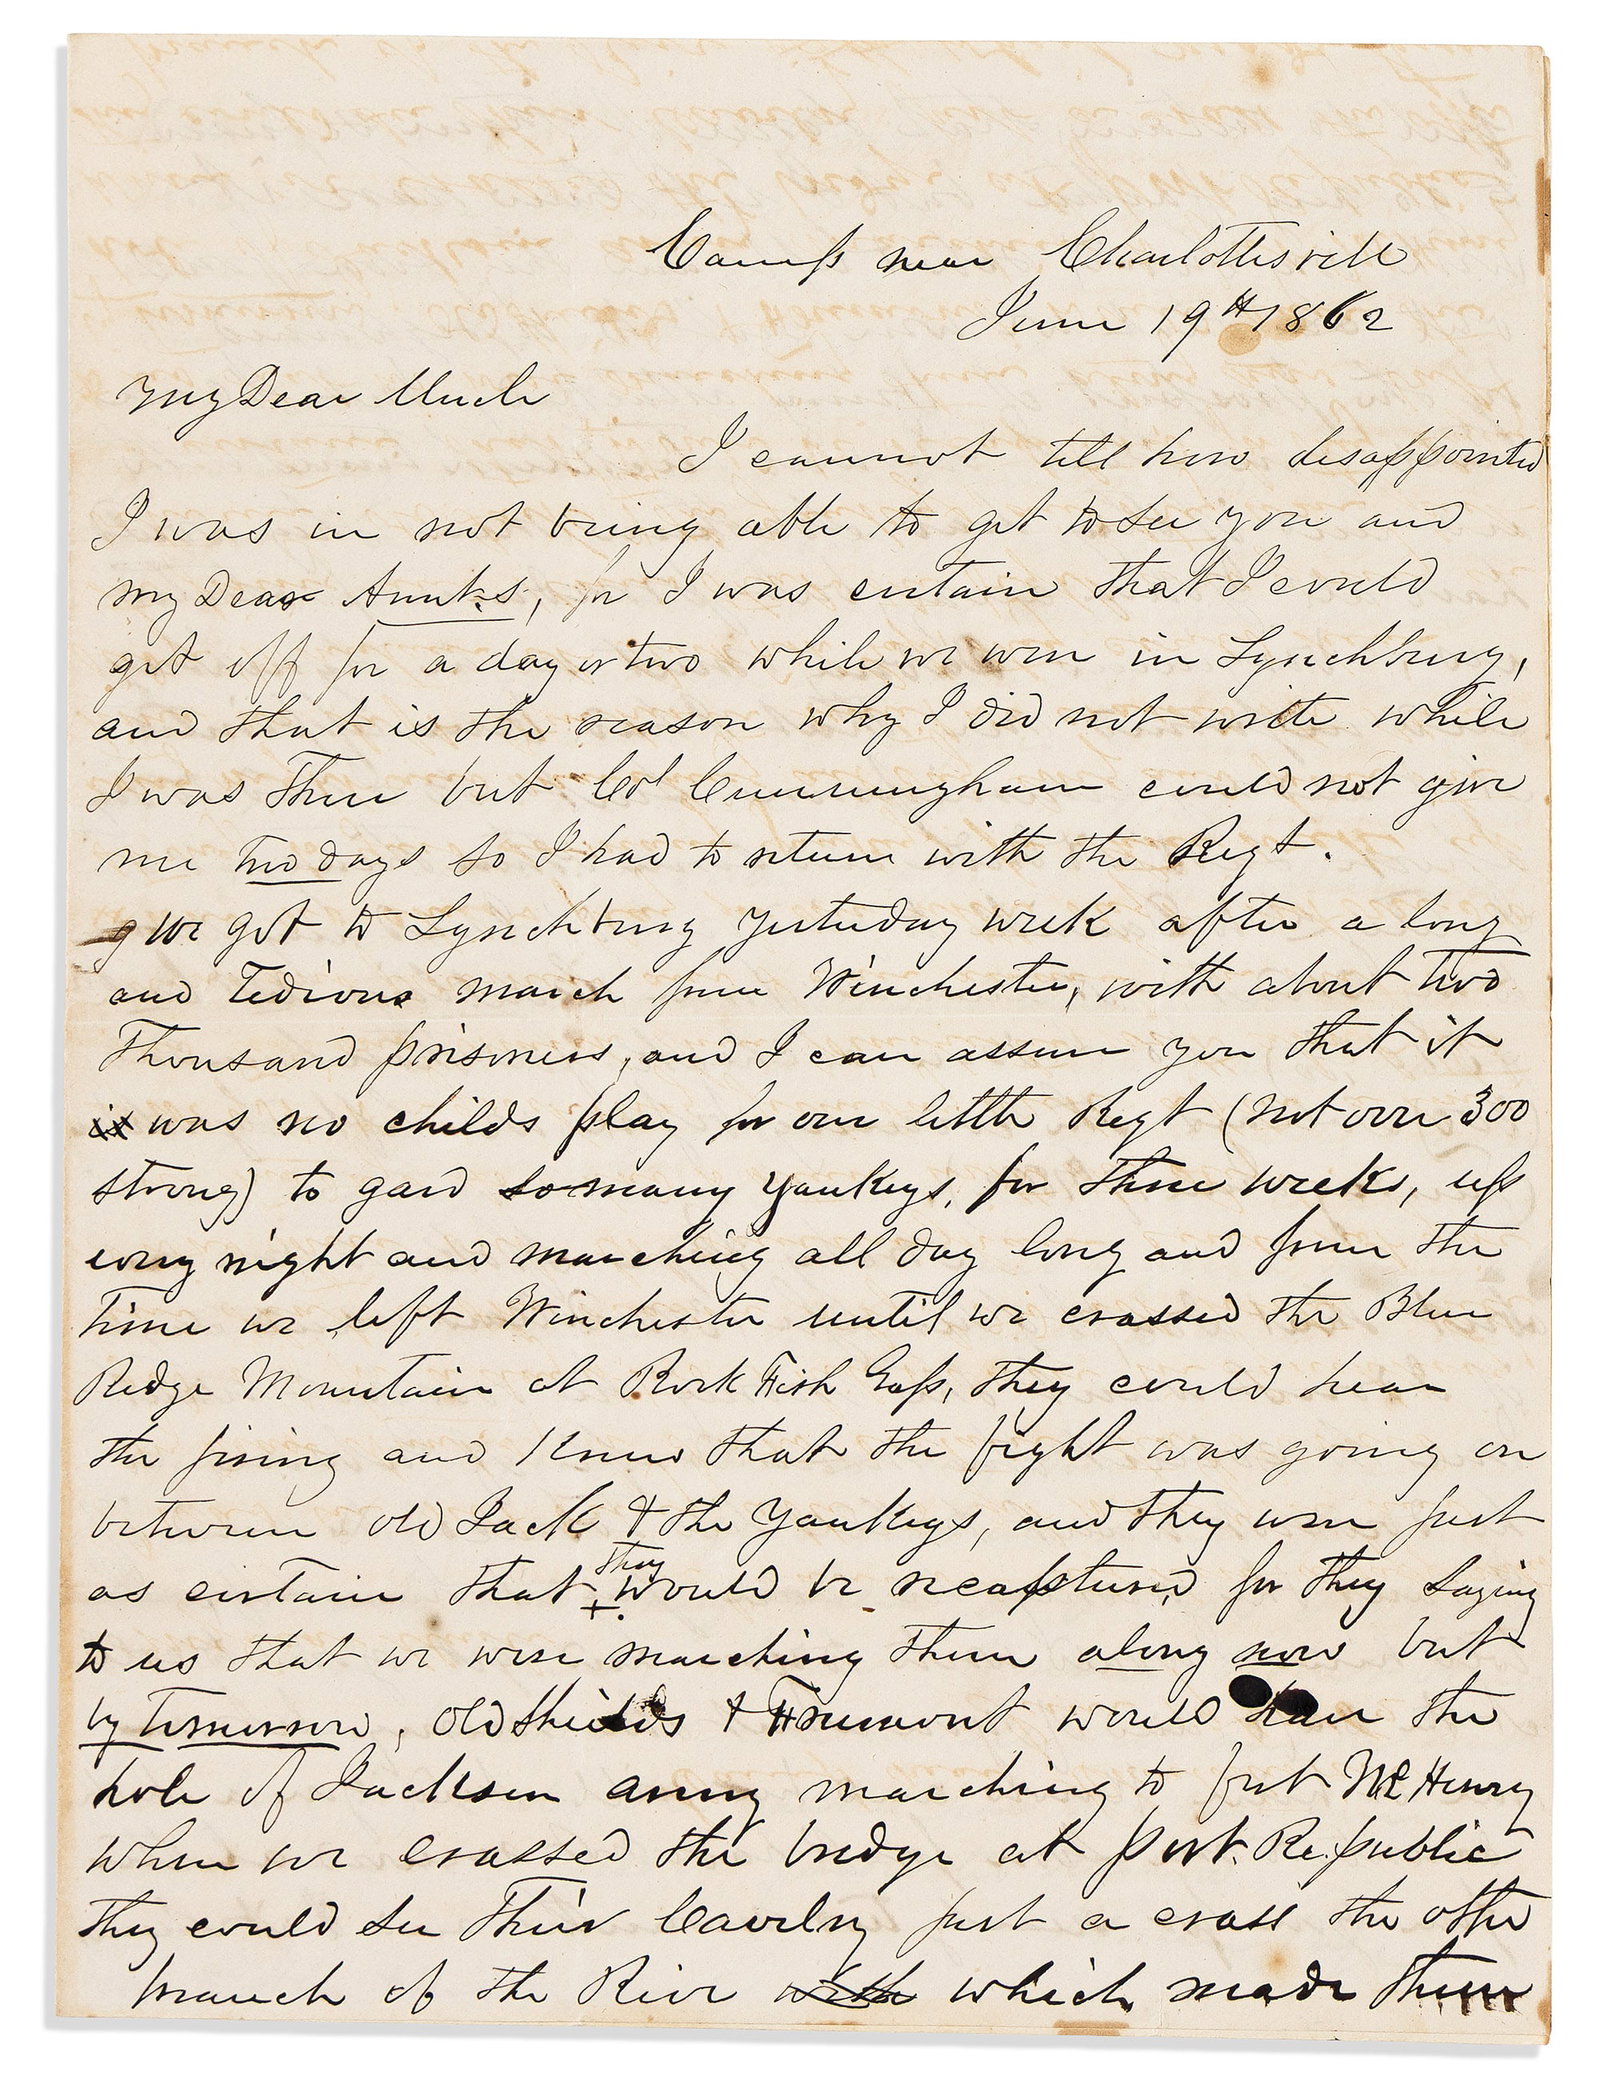 Camp near Charlottesvill
June 19th 1862
My Dear Uncle
I cannot tell how disappointed
I was in not being able to get to see you and
my Dear Aunt.s, for I was certain that I could
get off for a day or two while we were in Lynchburg,
and that is the reason why I did not write while
I was there but Col Cunningham could not give
me two days so I had to return with the Regt.
we got to Lynchburg yesterday week after a long
and Tedious march from Winchester, with about two
Thousand prisoners, and I can assure you that it
was no childs play for our little Regt (not over 300
strong) to gard so many Yankeys, for three weeks, up
evry night and marching all day long and from the
time we left Winchester until we crossed the Blue
Ridge Mountain at Rock Fish Gap, they could hear
the firing and knew that the fight was going on
between old Jack & the Yankeys, and they were just
as certain that they would be recaptured, for they saying
to us that we were marching them along now but
by tomorrow, old Shields & Fremont would have the
hole of Jackson army marching to fort McHenry
when we crossed the bridge at port. Republic
they could see Their Cavelry just a cross the other
branch of the River with which made them